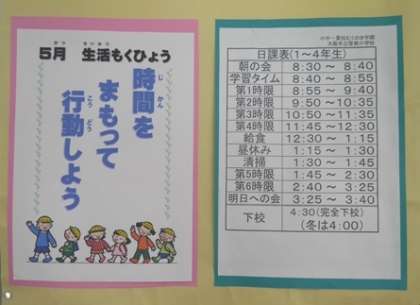 5月 生活もくひょう
時間を
まもって
行動しよう
日課表(1～4年生)
朝の会 8:30 ～ 8:40
学習タイム 8:40 ～ 8:55
第1時限 8:55 ～ 9:40
第2時限 9:50 ～ 10:35
第3時限 10:50 ～ 11:35
第4時限 11:45 ～ 12:30
給食 12:30 ～ 1:15
昼休み 1:15 ～ 1:30
清掃 1:30 ～ 1:45
第5時限 1:45 ～ 2:30
第6時限 2:40 ～ 3:25
明日への会 3:25 ～ 3:40
下校 4:30(完全下校)
(冬は4:00)